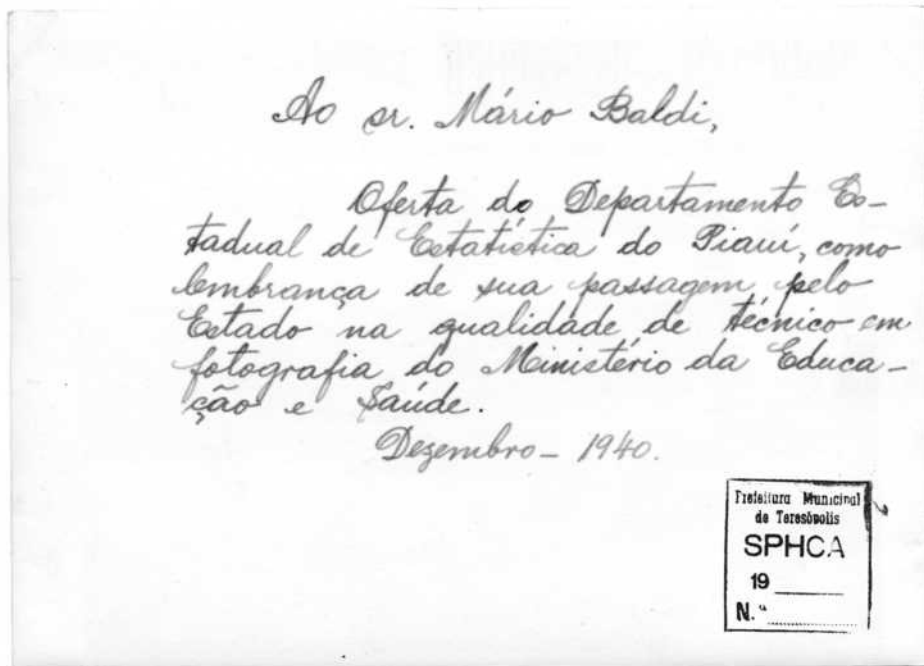 Ao sr. Mário Baldi,
Oferta do Departamento Es-
tadual de Estatística do Piauí, como
lembrança de sua passagem pelo
Estado na qualidade de técnico em
fotografia do Ministério da Educa-
ção e Saúde.
Dezembro - 1940.
Prefeitura Municipal
de Teresópolis
SPHCA
19
N.º